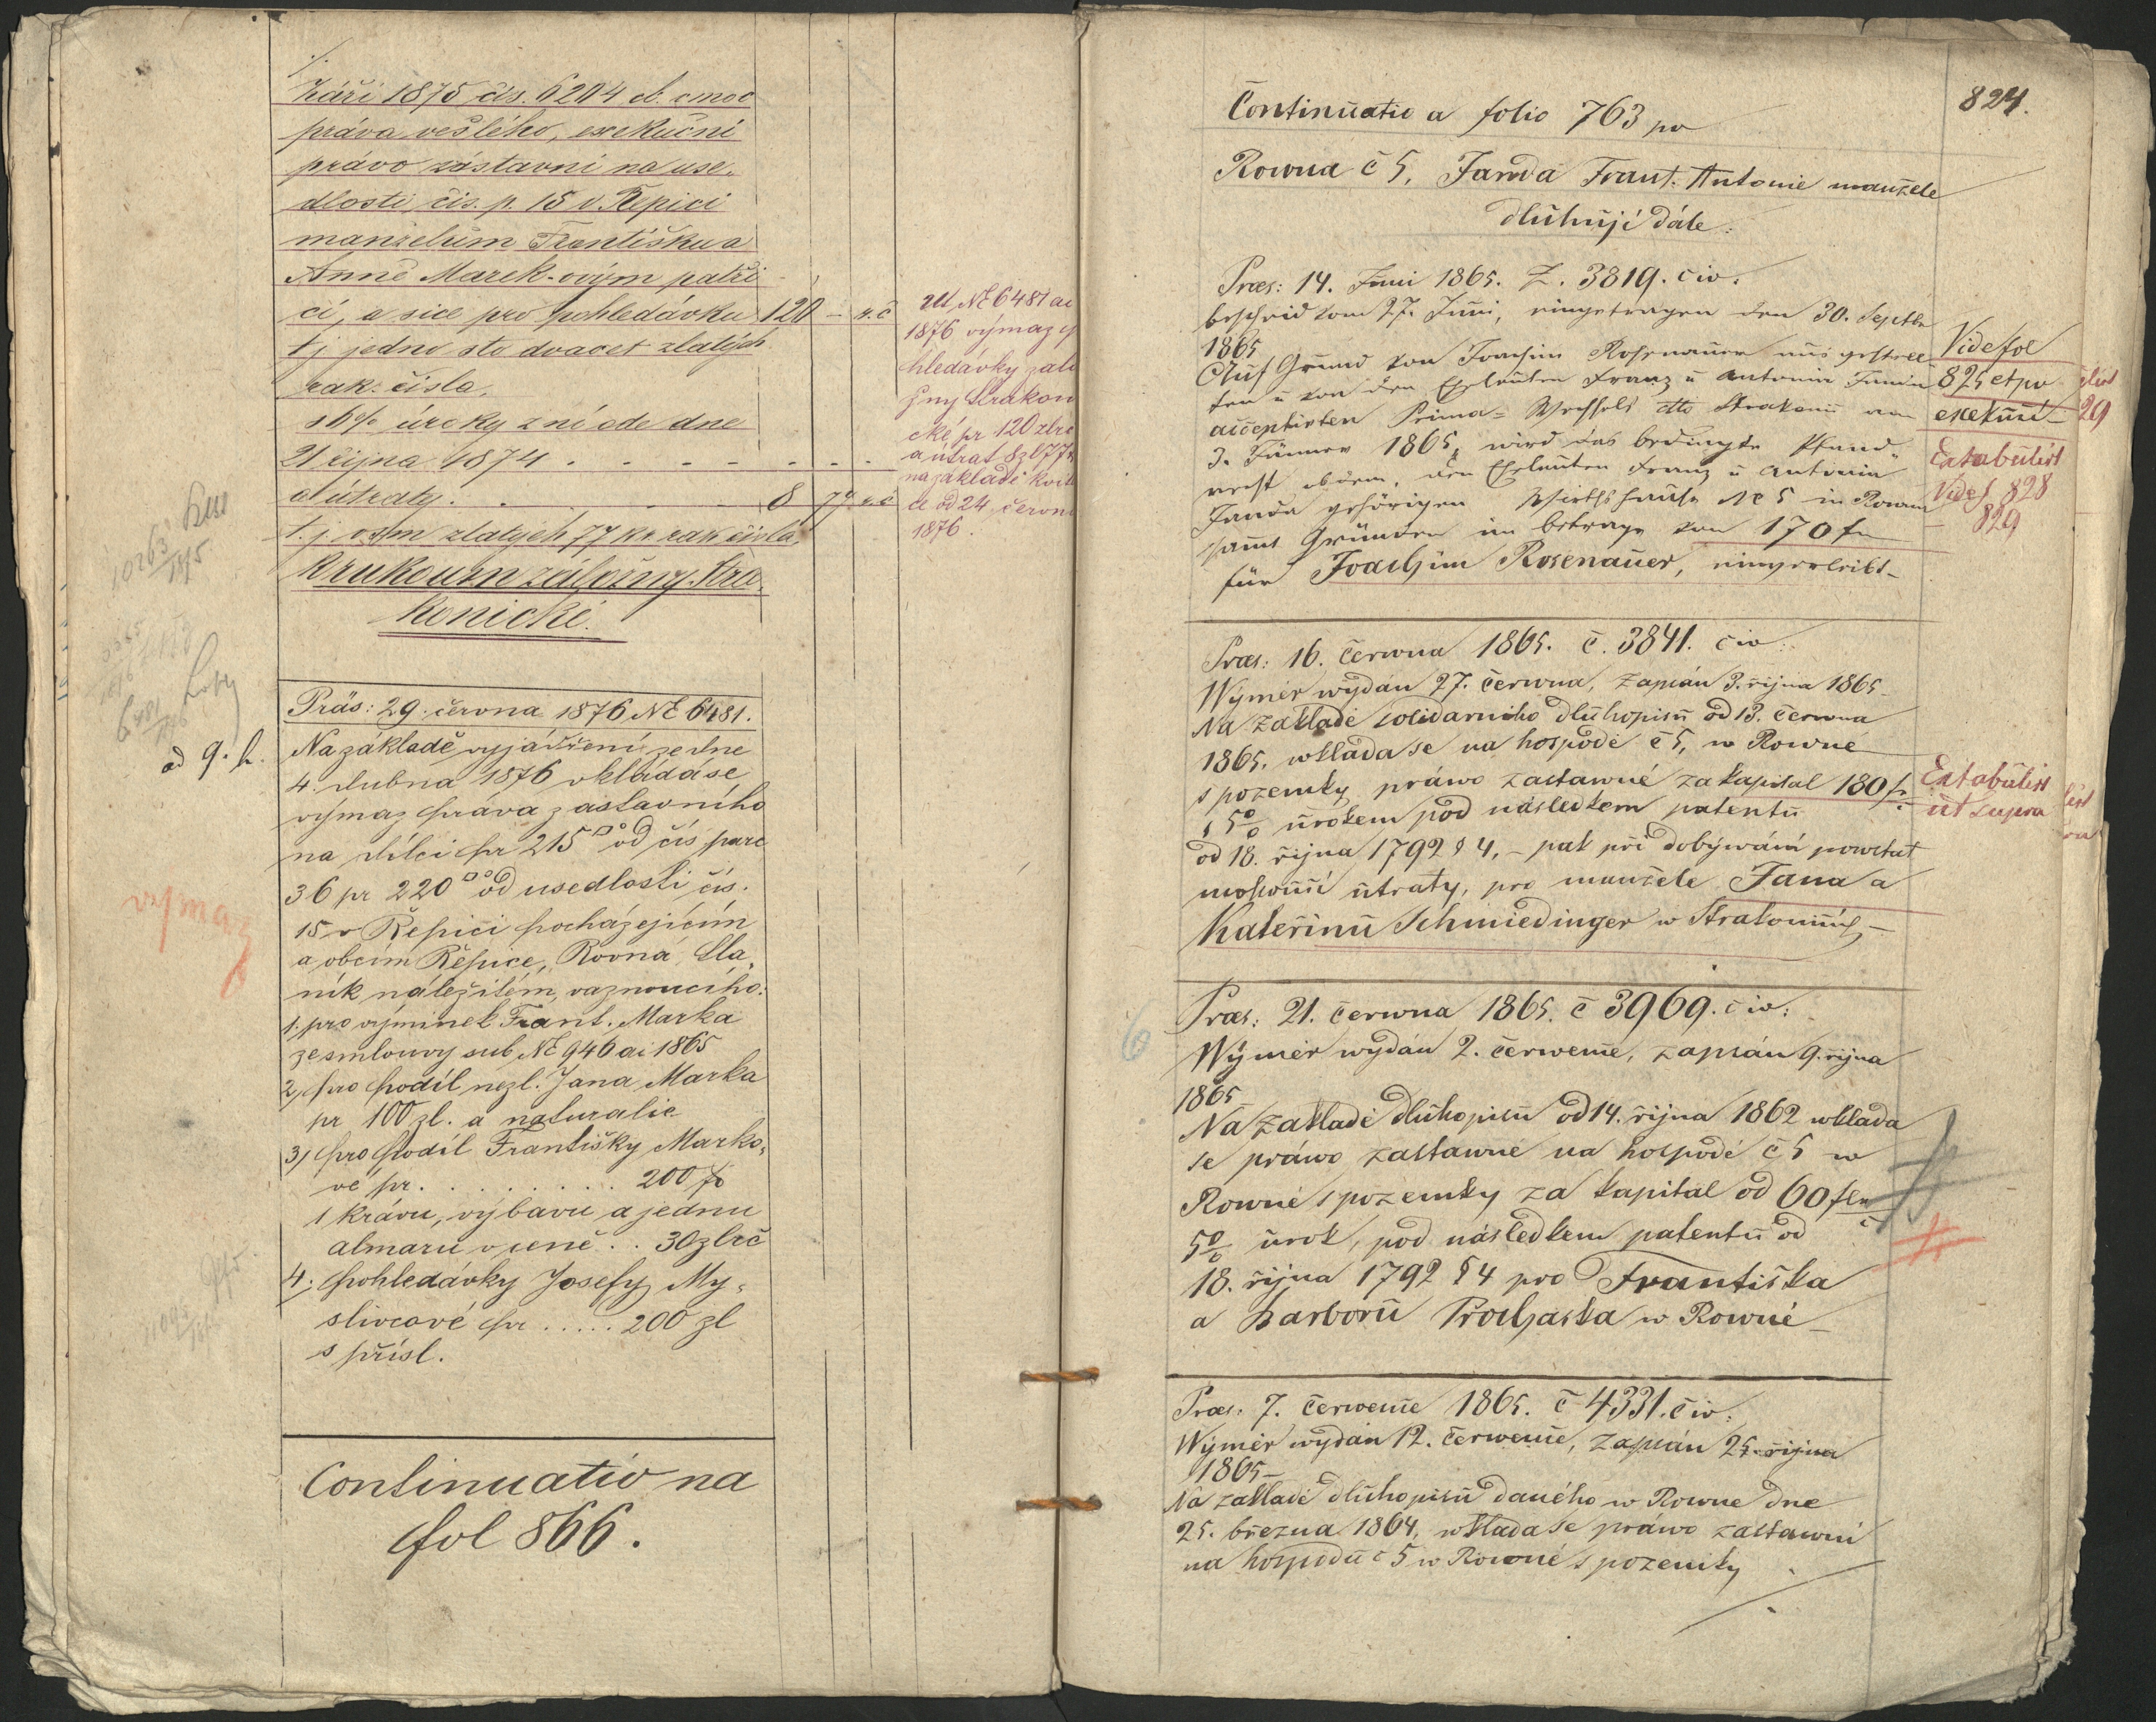 září 1875 čís. 6204 et. cmoc
práva vešlého, exekuční
právo zástavní na use-
dlosti čís. p. 15 v Řepici
manželům Františku a
Anně Marek-ovým patři-
cí, a sice pro pohledávku 120 – r. č.
t. j. jedno sto dvacet zlatých
rak. čísla,
s 6% úroky z ní ode dne
21 října 1874 . . . . . . .
a útraty . . . . . 8 77 r. č.
t. j. osm zlatých 77 kr. rak čísla,
Krukoum záložny Stra-
konické.
ad NE 6481 ai
1876 výmaz
hledávky zálo
žny Strakon
cké pr 120 zlrč
a útrat 8 zl 77
na základě kvit
ce od 24 červn
1876.
10263
1875
Präs: 29. června 1876 NE 6481.
6481
876
ad 9. h.
Na základě vyjádření ze dne
4. dubna 1876 vkládá se
výmaz práva zástavního
na dílci pr 215 □° od čís parc
36 pr 220 □° od usedlosti čís.
výmaz
15 v Řepici pocházejícím
a obcím Řepice, Rovná, Sla-
ník náležitém, vaznoucího:
1. pro výminek Frant. Marka
ze smlouvy sub NE 946 ai 1865
2, pro podíl nezl. Jana Marka
pr 100 zl. a naturalie
3, pro podíl Františky Marko-
vé pr. . . . . . . . . 200 fr
1 krávu, výbavu a jednu
almaru v ceně . . 30 zl rč
4. pohledávky Josefy My-
slivcové pr ..... 200 zl
s přísl.
Continuatio na
fol 866.
824.
Continuatio a folio 763 po
Rowna č 5, Janda Frant. Antonie manžele
dluhují dále:
Præs: 14. Juni 1865. Z. 3819. civ.
bescheid vom 27. Juni, eingetragen den 30. Septbr
1865
Auf Grund von Joachim Rosenauer ausgestell-
ten u von den Eheleuten Franz u Antonia Janda
acceptirten Prima-Wechsels dto Strakonic am
3. Jänner 1865, wird das bedingte Pfand-
recht ob dem, den Eheleuten Franz u Antonia
Janda gehörigen Wirthshause NE 5 in Rowna
sammt Gründen im betrage von 170 fr
für Joachim Rosenauer, einverleibt –
Vide fol
825 et po
exekuci –
Extabulirt
Vide f. 828
829
29
Præs: 16. června 1865. č. 3841. civ:
Wýměr wydán 27. června, zapsán 3. října 1865 –
Na základě solidarního dluhopisu od 13. června
1865. wkláda se na hospodě č 5, w Rowné
s pozemky práwo zástawné za kapital 180 fr
s 5% úrokem pod následkem patentu
od 18. října 1792 § 4, – pak při dobýwání powstat
mohoucí útraty, pro manžele Jana a
Kateřinu Schmiedinger w Strakonicích –
Extabulirt
ut supra
Præs: 21. června 1865. č 3969. civ:
Wýměr wydán 2. července, zapsán 9. října
1865 –
Na základě dluhopisu od 14. října 1862 wkláda
se práwo zástawné na hospodě č 5 w
Rowné s pozemky za kapital od 60 fl
5% úrok, pod následkem patentu od
18. října 1792 § 4 pro Františka
a Barboru Prochaska w Rowné –
6
Præs: 7. července 1865. č 4331. civ:
Wýměr wydán 12. července, zapsán 25. října
1865 –
Na základě dluhopisu daného w Rowne dne
25. března 1864, wkláda se práwo zástawní
na hospodu č 5 w Rowné s pozemky